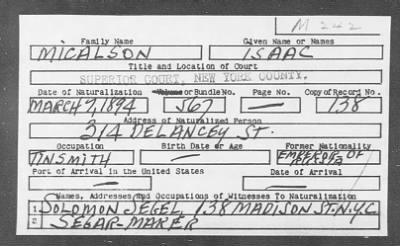 M 242
Family Name Given Name or Names
MICALSON ISAAC
Title and Location of Court
SUPERIOR COURT, NEW YORK COUNTY.
Date of Naturalization Volume or Bundle No. Page No. Copy of Record No.
MARCH 7, 1894 567 — 138
Address of Naturalized Person
214 DELANCEY ST.
Occupation Birth Date or Age Former Nationality
TINSMITH — EMPEROR OF RUSSIA
Port of Arrival in the United States Date of Arrival
— —
Names, Addresses and Occupations of Witnesses To Naturalization
1 SOLOMON SEGEL 138 MADISON ST. N.Y.C.
2 SEGAR-MAKER